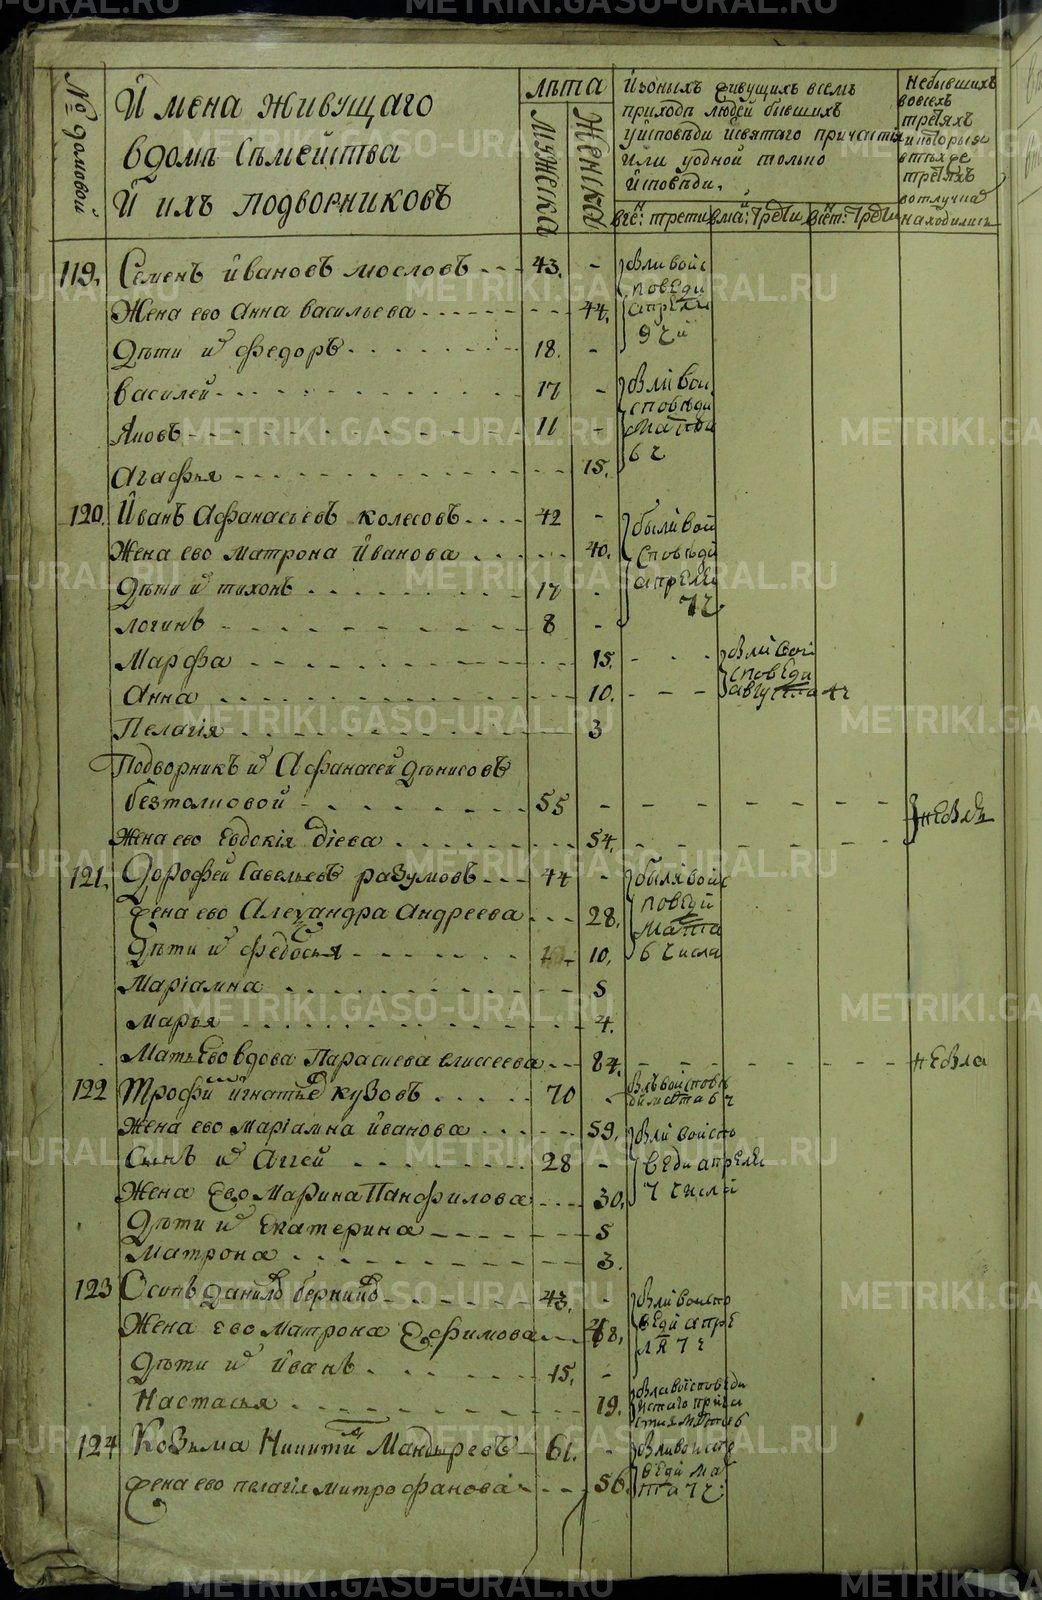 № домовой
Имена живущаго
вдомѣ Сѣмейства
И ихъ подворниковъ
лѣта
Мужеска
Женска
Изоныхъ живущихъ всемъ
приходѣ людей бывшихъ
уисповѣди исвятаго причастия
или уодной только
исповѣди.
вге: трети
вмаи: трети
всет: трети
Небывшихъ
вовсехъ
третяхъ
икоторыя
втѣхже
третяхъ
вотлучке
находились
119. Семенъ Ивановъ мословъ 43. -
были войс
поведи
апреля
9 ч:
Жена ево Анна васильева 44.
Дѣти ихъ федоръ 18. -
василей 17 -
были вои
споведи
марта
6 ч
Яковъ 11 -
Агафья 15.
120. Иванъ Афанасьевъ колесовъ 42 -
были вои
споведи
апреля
7 ч.
Жена ево матрона Иванова 40.
Дѣти ихъ тихонъ 17 -
логинъ 8 -
Марфа 15.
были вои
споведи
августа 4 ч
Анна 10.
Пелагія 3
Подворникъ ихъ Афанасей Дѣнисовъ
безтолковой 55 -
небыли
Жена ево Евдокія Діева 54.
121. Дорофей Савельевъ разумовъ 44 -
были воис
поведи
марта
6 числа
жена ево Александра Андреева 28.
Дѣти ихъ федосья 10.
Маріамна 5
Марья 4.
Мать ево вдова Параскева елисеева 84. небыла
122 Трофимъ игнатьевъ кузовъ 70 -
Жена ево Маріамна иванова 59.
были воиспо
веди апреля
7 числа
Сынъ ихъ Аггей 28 -
Жена Ево Марина Панфилова 30.
Дѣти ихъ Екатерина 5
Матрона 3.
123 Осипъ данилов 43. -
были воиспо
веди апре
ля 7 ч
Жена ево матрона Ефимова 48.
Дѣти ихъ Иванъ 15. -
Настасья 19.
была воисповеди
истаго прича
стия марта 6
124 Козьма Никитин Мандыревъ 61. -
были воиспо
веди ма
рта 7 ч:
жена ево пелагія митрофанова 56.
METRIKI.GASO-URAL.RU